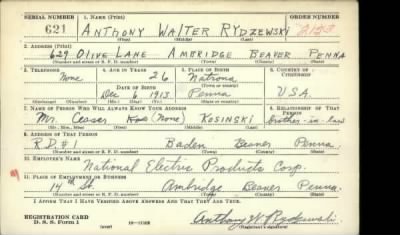 SERIAL NUMBER 1. NAME (Print) ORDER NUMBER
621 ANTHONY WALTER RYDZEWSKI
(First) (Middle) (Last)
2. ADDRESS (Print)
629 OLIVE LANE AMBRIDGE BEAVER PENNA
(Number and street or R. F. D. number) (Town) (County) (State)
3. TELEPHONE 4. AGE IN YEARS 5. PLACE OF BIRTH 6. COUNTRY OF CITIZENSHIP
None 26 Natrona
DATE OF BIRTH (Town or county)
Dec 6 1913 Penna U.S.A.
(Mo.) (Day) (Yr.) (State or country)
7. NAME OF PERSON WHO WILL ALWAYS KNOW YOUR ADDRESS 8. RELATIONSHIP OF THAT PERSON
Mr. Ceaser (None) KOSINSKI brother-in-law
(Mr., Mrs., Miss) (First) (Middle) (Last)
9. ADDRESS OF THAT PERSON
R.D. #1 Baden Beaver Penna.
(Number and street or R. F. D. number) (Town) (County) (State)
10. EMPLOYER'S NAME
National Electric Products Corp.
11. PLACE OF EMPLOYMENT OR BUSINESS
14th St. Ambridge Beaver Penna.
(Number and street or R. F. D. number) (Town) (County) (State)
I AFFIRM THAT I HAVE VERIFIED ABOVE ANSWERS AND THAT THEY ARE TRUE.
REGISTRATION CARD
D. S. S. Form 1 Anthony W. Rydzewski
(over) (Registrant's signature)